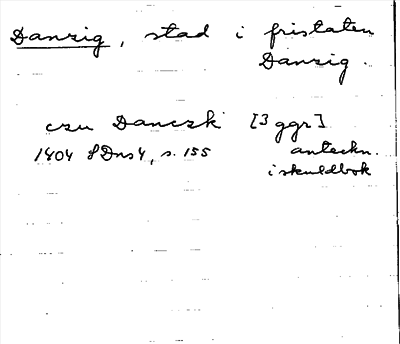 Danzig, stad i fristaten
Danzig.
czu Danczk [3 ggr]
1404 SDns4, s. 155 anteckn.
i skuldbok